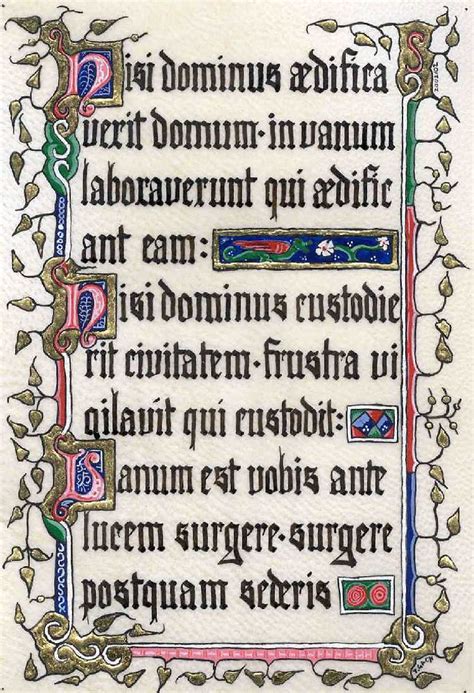 Nisi dominus ædifica
verit domum·in vanum
laboraverunt qui ædific
ant eam:
Nisi dominus custodie
rit civitatem·frustra vi
gilavit qui custodit:
Vanum est vobis ante
lucem surgere·surgere
postquam sederis